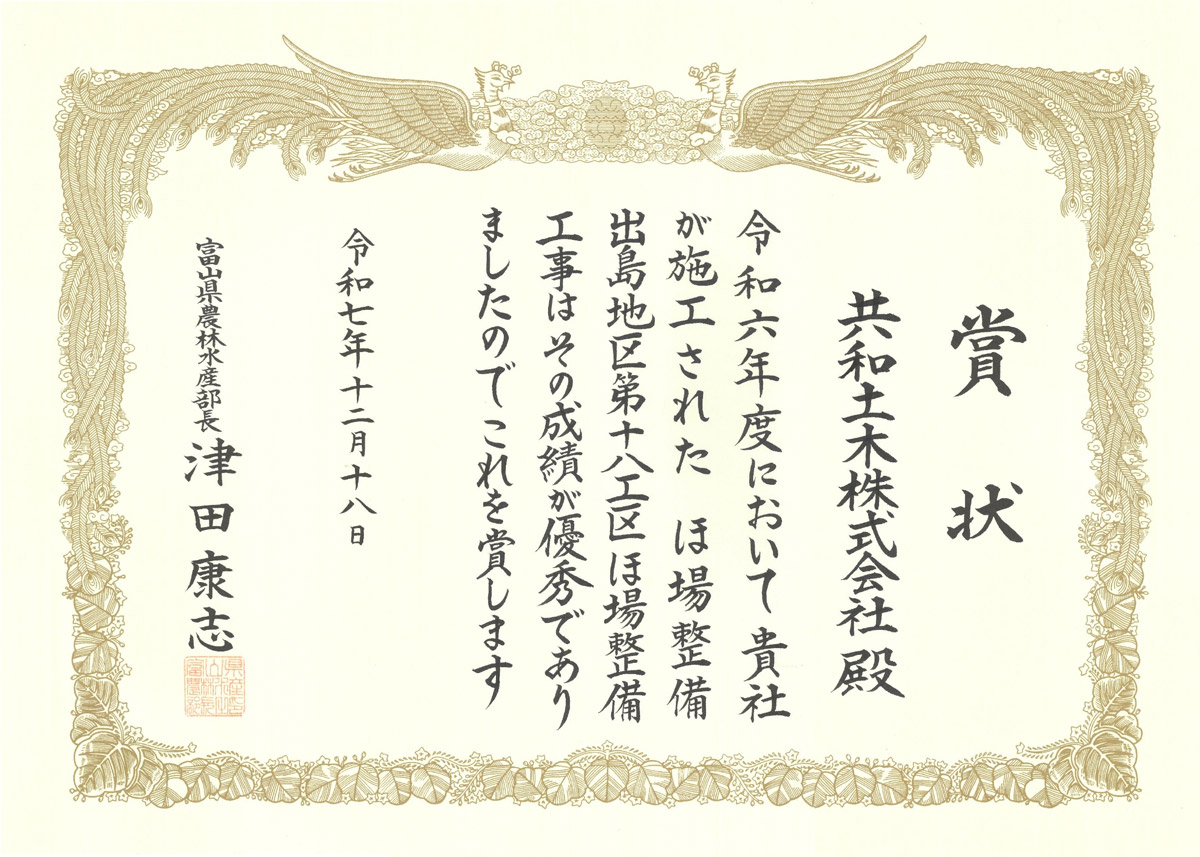 賞状
共和土木株式会社殿
令和六年度において貴社
が施工された ほ場整備
出島地区第十八工区ほ場整備
工事はその成績が優秀であり
ましたのでこれを賞します
令和七年十二月十八日
富山県農林水産部長 津田康志